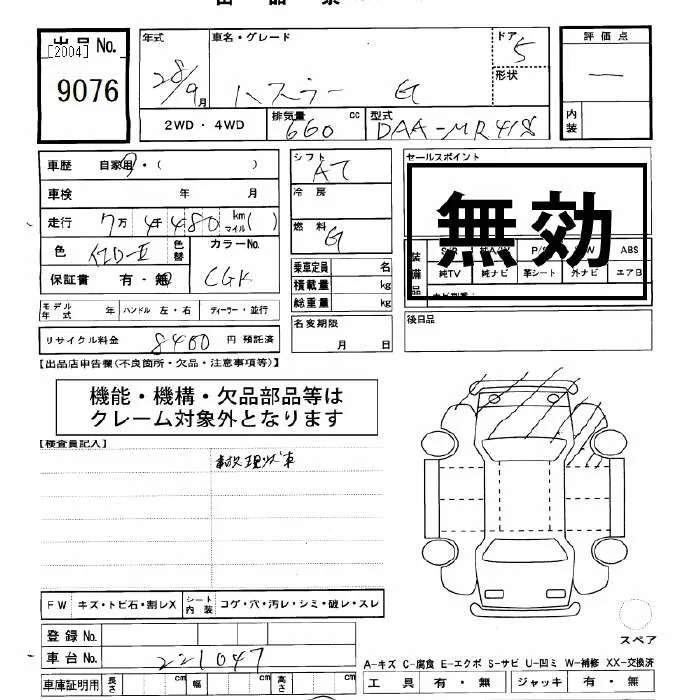 出品票
出品No.
[2004]
9076
年式
28/9月
車名・グレード
ハスラー G
ドア
5
形状
評価点
—
内装
2WD・4WD
排気量
660 cc
型式
DAA-MR41S
車歴 自家用・( )
車検 年 月
走行 7万4千480 km マイル( )
色
色替
カラーNo.
CGK
保証書 有・無
モデル年式 年 ハンドル 左・右 ディーラー・並行
リサイクル料金 8400 円 預託済
シフト
AT
冷房
燃料
G
乗車定員 名
積載量 kg
総重量 kg
名変期限
月 日
セールスポイント
無効
装備品
S/R 純A/W P/S P/W ABS
純TV 純ナビ 革シート 外ナビ エアB
後日品
【出品店申告欄(不良箇所・欠品・注意事項等)】
機能・機構・欠品部品等は
クレーム対象外となります
【検査員記入】
事故現状車
FW キズ・トビ石・割レX シート内装 コゲ・穴・汚レ・シミ・破レ・スレ
登録No.
車台No. 221047
車庫証明用 長さ cm 幅 cm 高さ cm
スペア
A-キズ C-腐食 E-エクボ S-サビ U-凹ミ W-補修 XX-交換済
工具 有・無 ジャッキ 有・無